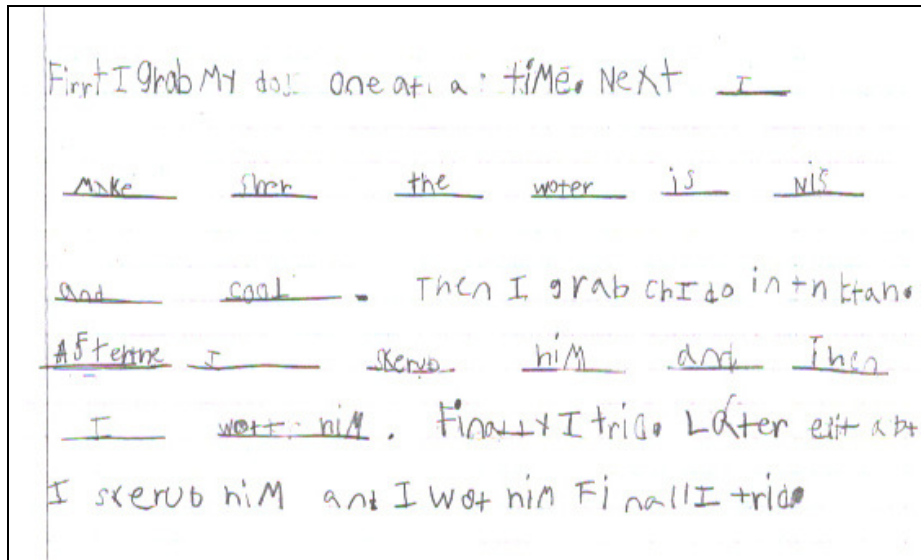 Firrt I grab My dog one at a time. Next I
Make sher the woter is Nis
and cool. Then I grab
Afterthe I skerub hiM and Then
I wott hiM. Finally I trid. Later
I skerub hiM and I wot hiM Finall I trid.